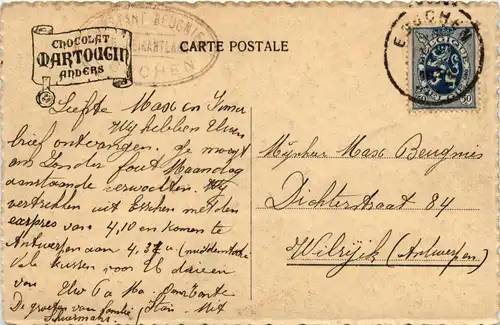 CHOCOLAT
MARTOUGIN
ANVERS
CARTE POSTALE
ESSCHEN
BELGIQUE
50
Liefste Max en Irma
Wij hebben Uwen
brief ontvangen. Je moogt
ons zonder fout Maandag
aanstaande verwachten. Wij
vertrekken uit Esschen met den
express van 4,10 en komen te
Antwerpen aan 4,37 u (middenstatie)
Vele kussen voor U drieën
van Uw Pa Ma Constante
De groeten van familie Stan. Mit
Mijnheer Max Beugnies
Dichterstraat 84
Wilrijk (Antwerpen)